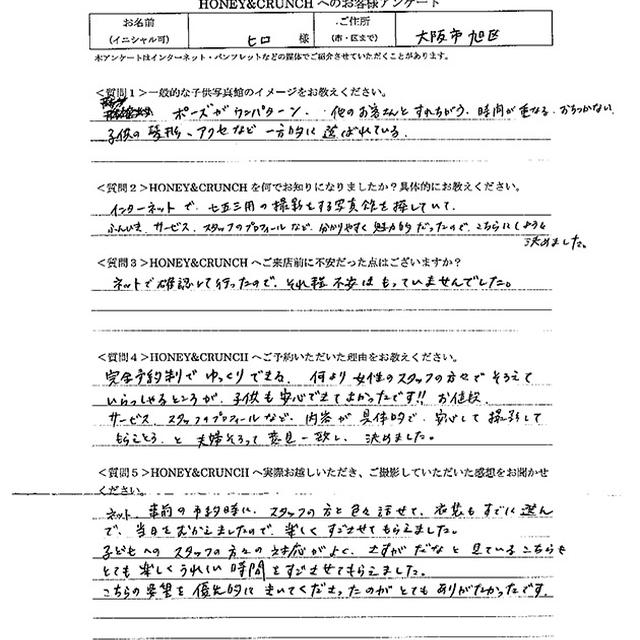 HONEY&CRUNCH へのお客様アンケート
お名前
(イニシャル可)
ヒロ 様
ご住所
(市・区まで)
大阪市旭区
本アンケートはインターネット・パンフレットなどの媒体でご紹介させていただくことがあります。
<質問1>一般的な子供写真館のイメージをお教えください。
ポーズがワンパターン、他のお客さんとすれちがう、時間が重なる、おちつかない
子供の髪形、アクセなど一方的に選ばれている。
<質問2>HONEY&CRUNCHを何でお知りになりましたか?具体的にお教えください。
インターネットで、七五三用の撮影をする写真館を探していて、
ふんいき、サービス、スタッフのプロフィールなど、分かりやすく魅力的だったので、こちらにしようと
決めました。
<質問3>HONEY&CRUNCHへご来店前に不安だった点はございますか?
ネットで確認して行ったので、それ程不安はもっていませんでした。
<質問4>HONEY&CRUNCHへご予約いただいた理由をお教えください。
完全予約制でゆっくりできる、何より女性のスタッフの方々でそろえて
いらっしゃるところが、子供も安心できてよかったです!! お値段、
サービス、スタッフのプロフィールなど、内容が具体的で、安心して撮影して
もらえそう、と夫婦そろって意見一致し、決めました。
<質問5>HONEY&CRUNCHへ実際お越しいただき、ご撮影していただいた感想をお聞かせ
ください。
ネット、事前の予約時に、スタッフの方と色々話せて、衣装もすぐに選ん
で、当日をむかえましたので、楽しくすごさせてもらえました。
子どもへのスタッフの方々の対応がよく、さすがだなと見ているこちらも
とても楽しくうれしい時間をすごさせてもらえました。
こちらの要望を優先的にきいてくださったのがとてもありがたかったです。